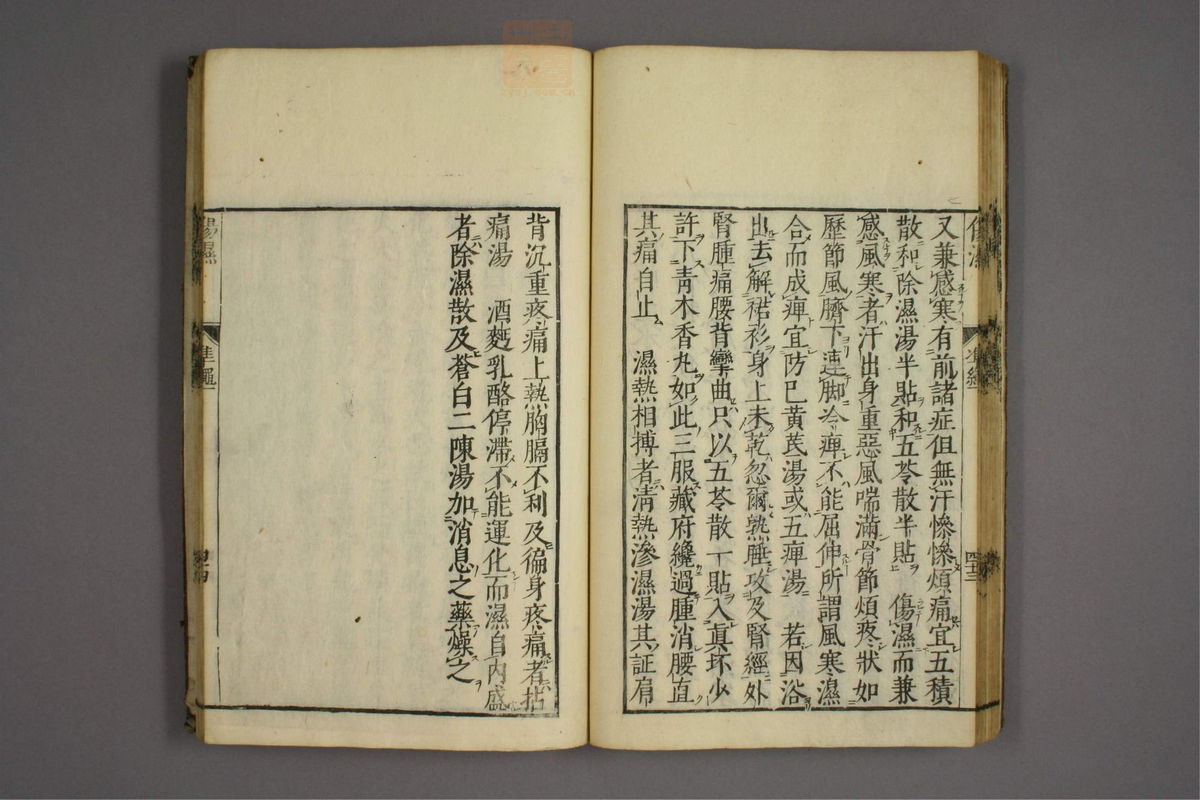 又兼感寒有前諸症但無汗慘慘煩痛宜五積
散和除濕湯半貼和五苓散半貼　傷濕而兼
感風寒者汗出身重惡風喘滿骨節煩疼狀如
歷節風臍下連脚冷痺不能屈伸所謂風寒濕
合而成痺宜防已黃芪湯或五痺湯　若因浴
出去解裙衫身上未乾忽爾熟睡攻及腎經外
腎腫痛腰背攣曲只以五苓散一貼入眞坏少
許下靑木香丸如此三服藏府纔過腫消腰直
其痛自止　濕熱相搏者淸熱滲濕湯其証肩
背沉重疼痛上熱胸膈不利及徧身疼痛者拈
痛湯　酒麪乳酪停滯不能運化而濕自內盛
者除濕散及蒼白二陳湯加消息之藥燥之
傷濕
準繩
四十四
四十三